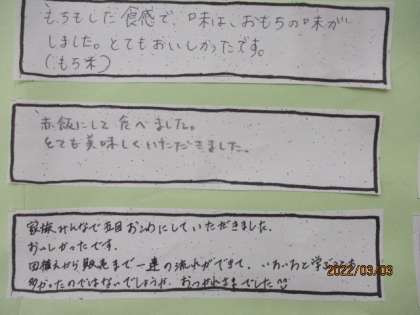 もちもちした食感で、味は、おもちの味が
しました。とてもおいしかったです。
(もち米)
赤飯にして食べました。
とても美味しくいただきました。
家族みんなで五目おこわにしていただきました。
おいしかったです。
田植えから販売まで一連の流れができて、いろいろと学ぶ
多かったのではないでしょうか。おつかれさまでした
2022/03/03